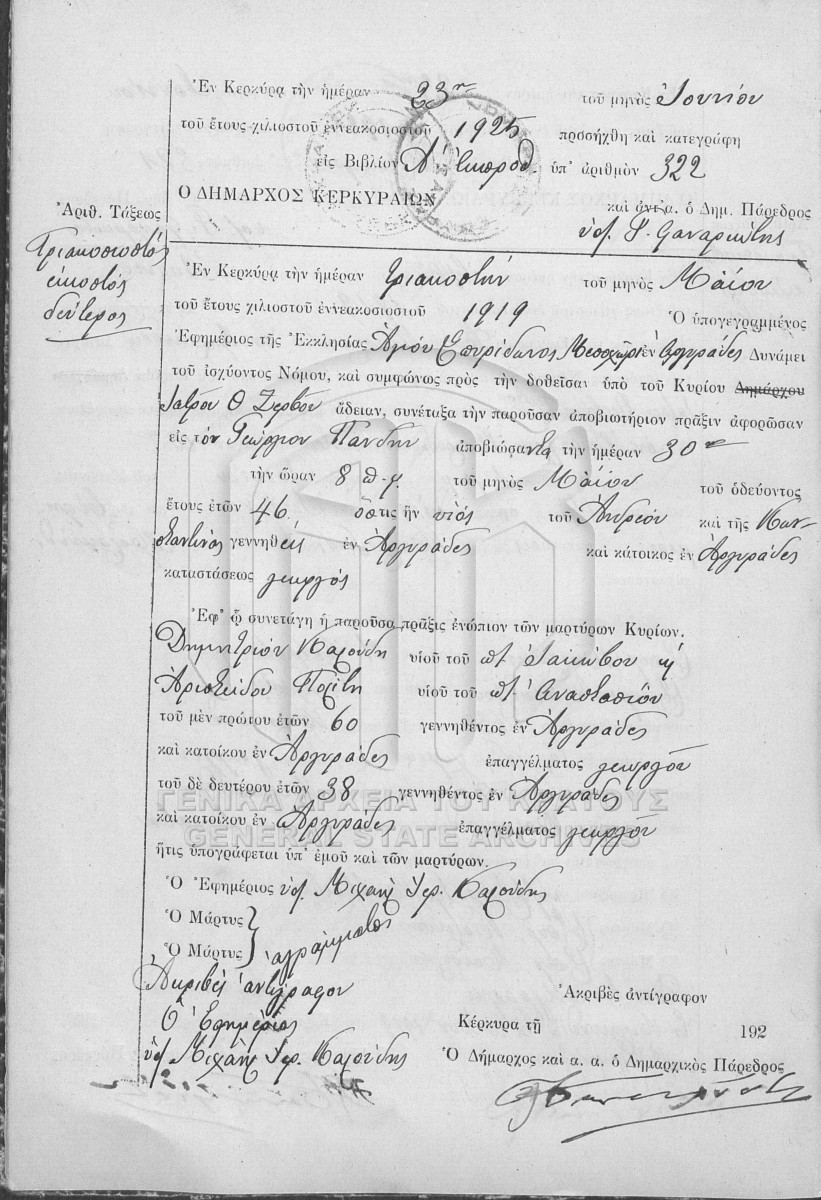 Ἐν Κερκύρᾳ τὴν ἡμέραν 23ην τοῦ μηνὸς Ἰουνίου
τοῦ ἔτους χιλιοστοῦ ἐννεακοσιοστοῦ 1925 προσήχθη καὶ κατεγράφη
εἰς Βιβλίον Λ' Ἐκπροθ. ὑπ' ἀριθμὸν 322
Ο ΔΗΜΑΡΧΟΣ ΚΕΡΚΥΡΑΙΩΝ
καὶ ἀντ' α. ὁ Δημ. Πάρεδρος
Ἀριθ. Τάξεως
Τριακοσιοστὸς
εἰκοστὸς
δεύτερος
Ἐν Κερκύρᾳ τὴν ἡμέραν τριακοστὴν τοῦ μηνὸς Μαΐου
τοῦ ἔτους χιλιοστοῦ ἐννεακοσιοστοῦ 1919 Ὁ ὑπογεγραμμένος
Ἐφημέριος τῆς Ἐκκλησίας Ἁγίου Σπυρίδωνος ἐν Ἀργυράδες Δυνάμει
τοῦ ἰσχύοντος Νόμου, καὶ συμφώνως πρὸς τὴν δοθεῖσαν ὑπὸ τοῦ Κυρίου Δημάρχου
Ἰατροῦ Θ Ζερβοῦ ἄδειαν, συνέταξα τὴν παροῦσαν ἀποβιωτήριον πρᾶξιν ἀφορῶσαν
εἰς τὸν Γεώργιον Πανδὴν ἀποβιώσαντα τὴν ἡμέραν 30ην
τὴν ὥραν 8 π.μ. τοῦ μηνὸς Μαΐου τοῦ ὁδεύοντος
ἔτους ἐτῶν 46 ὅστις ἦν υἱὸς τοῦ Ἀνδρέου καὶ τῆς Κων-
σταντινας γεννηθεὶς ἐν Ἀργυράδες καὶ κάτοικος ἐν Ἀργυράδες
καταστάσεως γεωργὸς
Ἐφ' ᾧ συνετάγη ἡ παροῦσα πρᾶξις ἐνώπιον τῶν μαρτύρων Κυρίων.
Δημητρίου Καλούδη υἱοῦ τοῦ ποτ. Ἰακώβου ἢ
Ἀριστείδου Πολίτη υἱοῦ τοῦ ποτ. Ἀναστασίου
τοῦ μὲν πρώτου ἐτῶν 60 γεννηθέντος ἐν Ἀργυράδες
καὶ κατοίκου ἐν Ἀργυράδες ἐπαγγέλματος γεωργοῦ
τοῦ δὲ δευτέρου ἐτῶν 38 γεννηθέντος ἐν Ἀργυράδες
ΓΕΝΙΚΑ ΑΡΧΕΙΑ ΤΟΥ ΚΡΑΤΟΥΣ
καὶ κατοίκου ἐν Ἀργυράδες ἐπαγγέλματος γεωργοῦ
GENERAL STATE ARCHIVES
ἥτις ὑπογράφεται ὑπ' ἐμοῦ καὶ τῶν μαρτύρων.
Ὁ Ἐφημέριος ὑπ. Μιχαὴλ Ἱερ. Καλούδης
Ὁ Μάρτυς
Ὁ Μάρτυς ἀγράμματος
Ἀκριβὲς ἀντίγραφον
Ὁ Ἐφημέριος
ὑπ. Μιχαὴλ Ἱερ. Καλούδης
Ἀκριβὲς ἀντίγραφον
Κέρκυρα τῇ 192
Ὁ Δήμαρχος καὶ α. α. ὁ Δημαρχικὸς Πάρεδρος